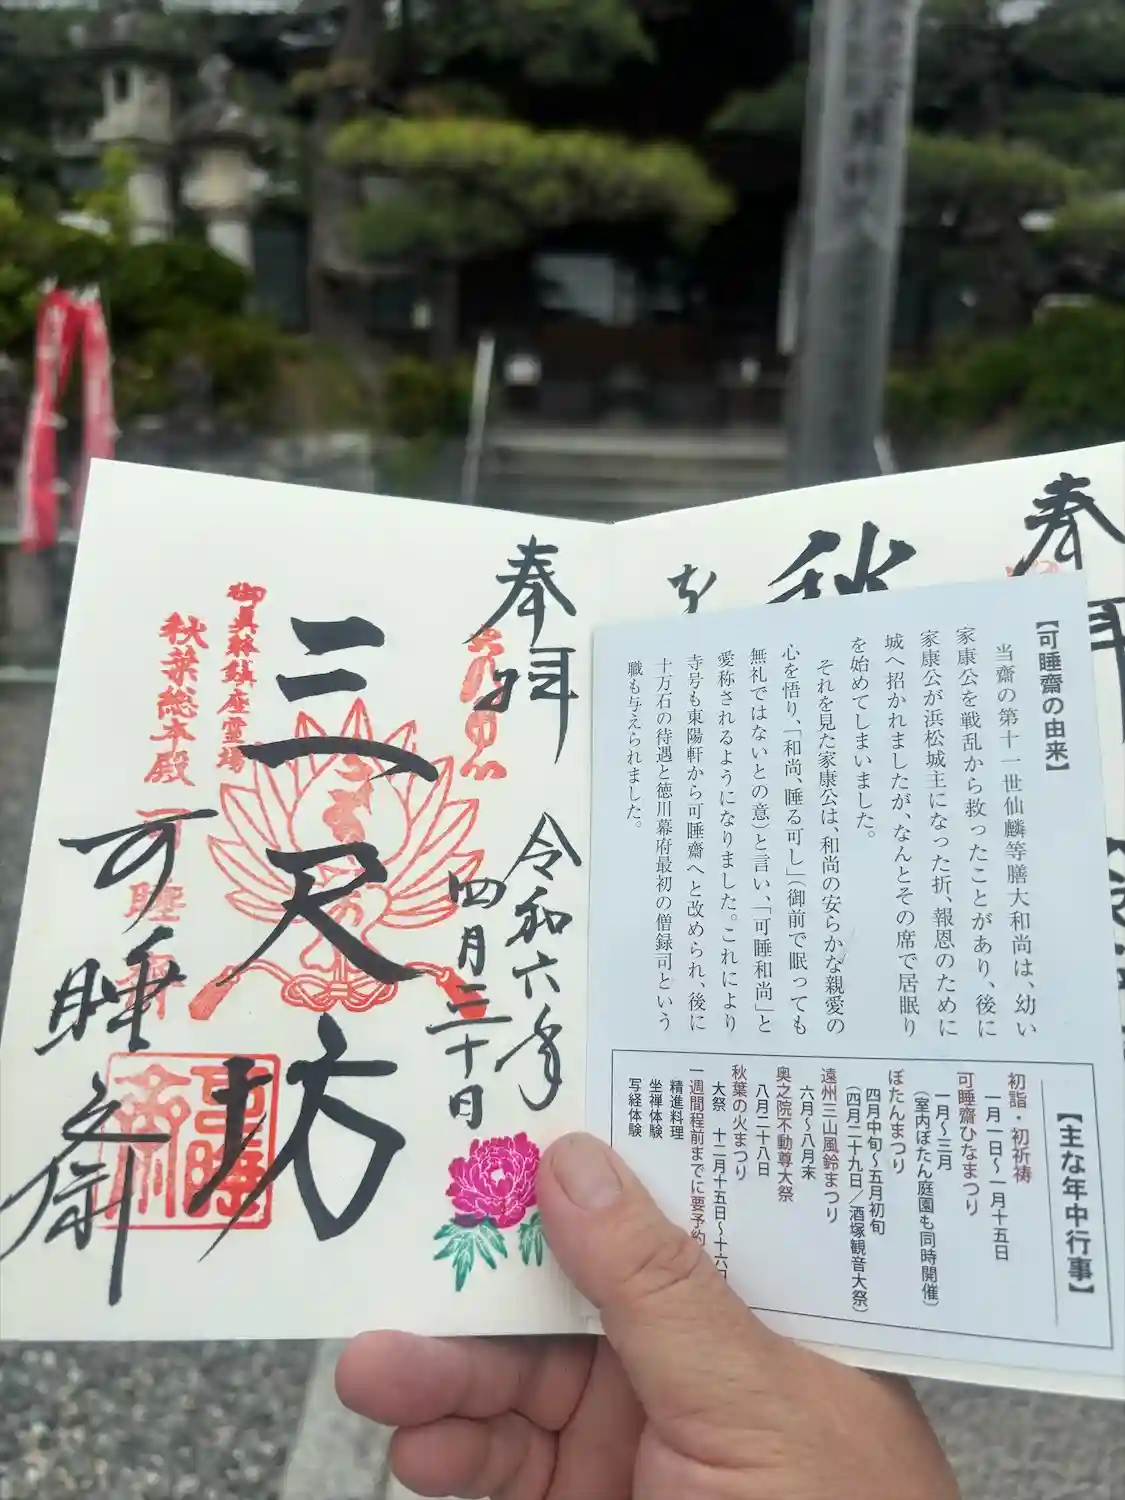 奉
秋
【可睡齋の由来】
当齋の第十一世仙麟等膳大和尚は、幼い
家康公を戦乱から救ったことがあり、後に
家康公が浜松城主になった折、報恩のために
城へ招かれましたが、なんとその席で居眠り
を始めてしまいました。
それを見た家康公は、和尚の安らかな親愛の
心を悟り、「和尚、睡る可し」（御前で眠っても
無礼ではないとの意）と言い、「可睡和尚」と
愛称されるようになりました。これにより
寺号も東陽軒から可睡齋へと改められ、後に
十万石の待遇と徳川幕府最初の僧録司という
職も与えられました。
【主な年中行事】
初詣・初祈祷
一月一日～一月十五日
可睡齋ひなまつり
一月～三月
（室内ぼたん庭園も同時開催）
ぼたんまつり
四月中旬～五月初旬
（四月二十九日／酒塚観音大祭）
遠州三山風鈴まつり
六月～八月末
奥之院不動尊大祭
八月二十八日
秋葉の火まつり
大祭 十二月十五日～十六日
一週間程前までに要予約
精進料理
坐禅体験
写経体験
奉拝
令和六年
四月三十日
三尺坊
御真躰鎮座霊場
秋葉総本殿
可睡齋